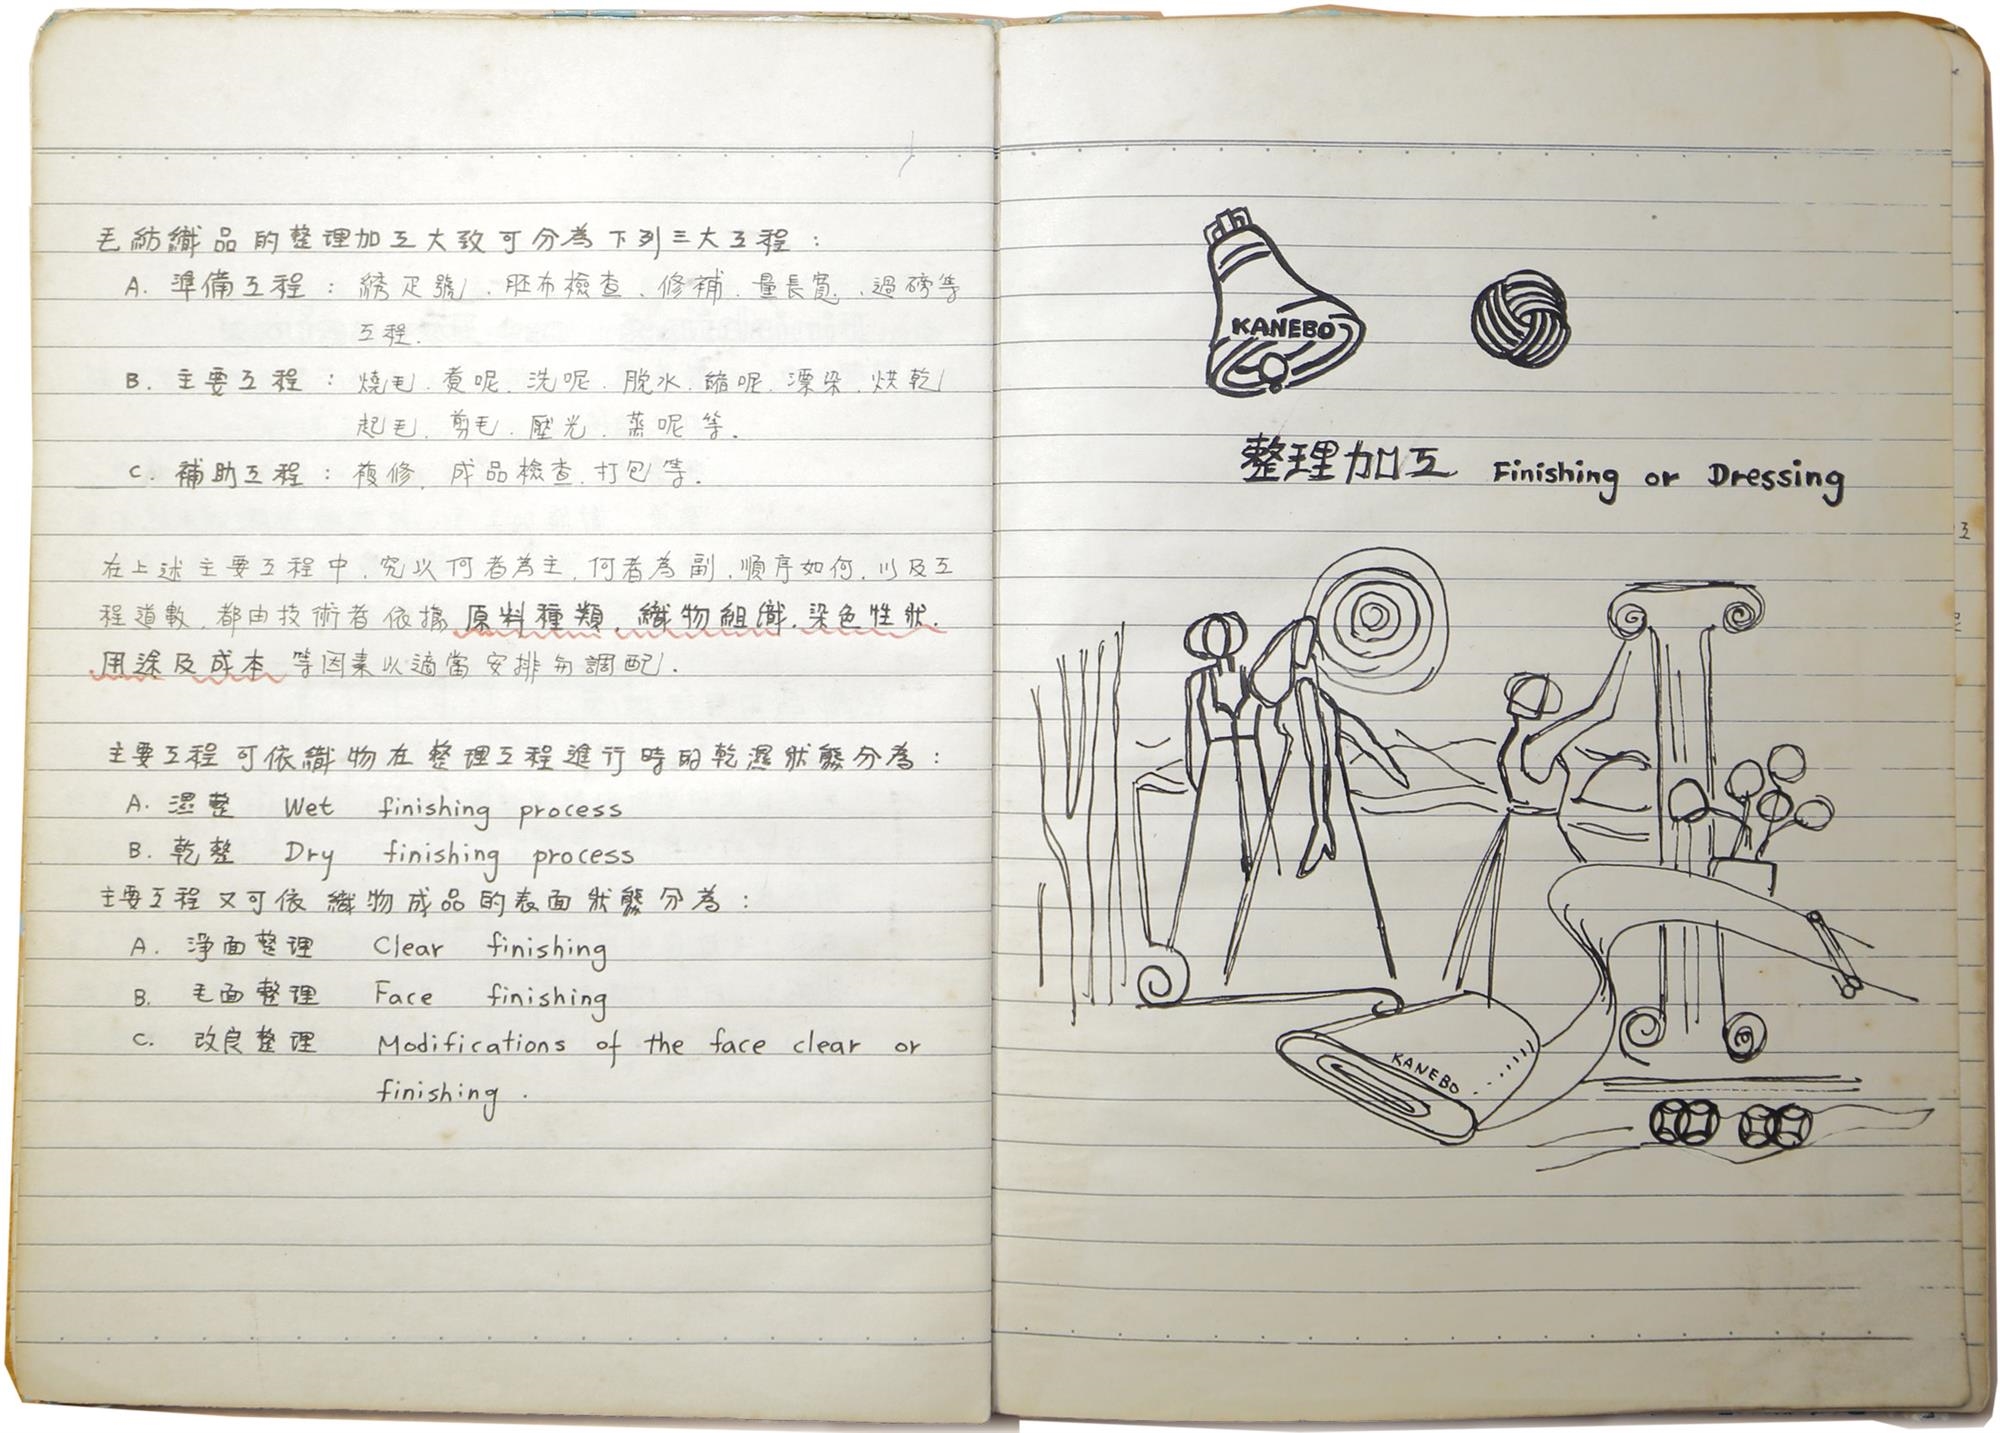 毛紡織品的整理加工大致可分為下列三大工程：
A. 準備工程：綉疋號、胚布檢查、修補、量長寬、過磅等
工程.
B. 主要工程：燒毛.煮呢.洗呢.脫水.縮呢.漂染.烘乾
起毛.剪毛.壓光.蒸呢等.
C. 補助工程：複修.成品檢查.打包等.
在上述主要工程中.究以何者為主.何者為副.順序如何.以及工
程道數.都由技術者依據原料種類.織物組織.染色性狀.
用途及成本等因素以適當安排勻調配.
主要工程可依織物在整理工程進行時的乾濕狀態分為：
A. 濕整 Wet finishing process
B. 乾整 Dry finishing process
主要工程又可依織物成品的表面狀態分為：
A. 淨面整理 Clear finishing
B. 毛面整理 Face finishing
C. 改良整理 Modifications of the face clear or
finishing.
KANEBO
整理加工 Finishing or Dressing
KANEBO